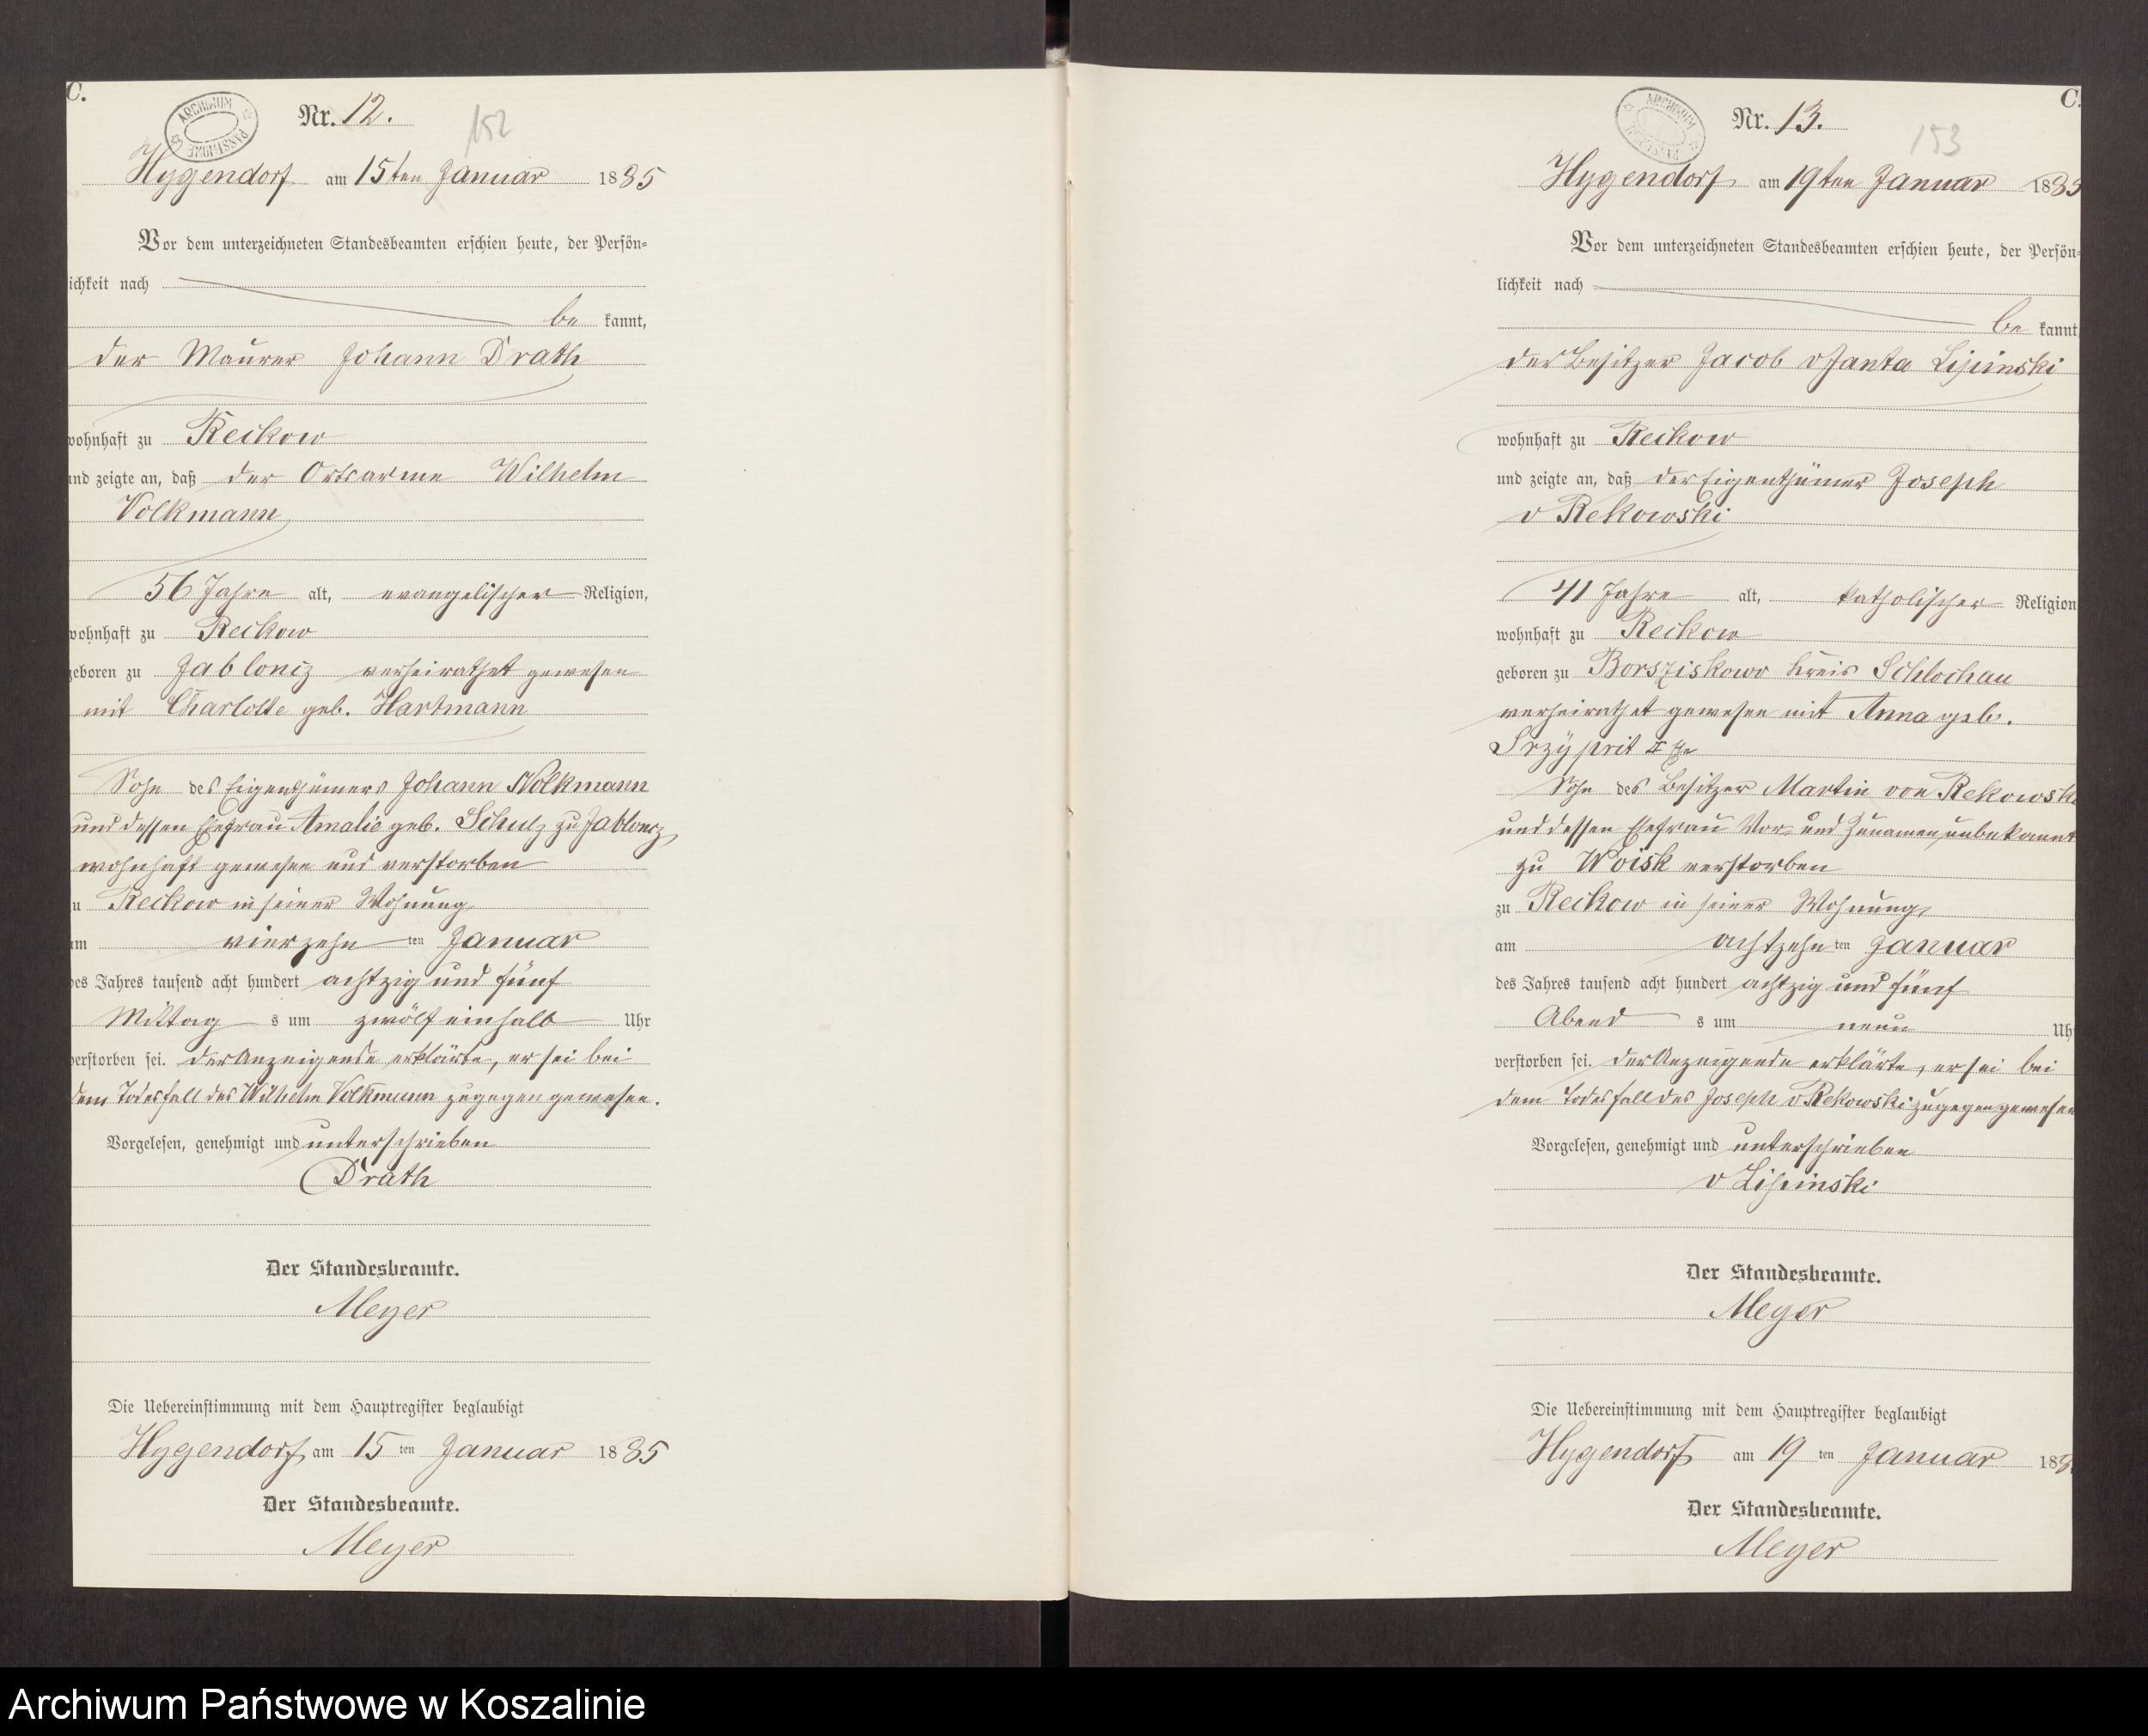 C.
ARCHIWUM PAŃSTWOWE
Nr. 12.
152
Hygendorf am 15ten Januar 1885
Vor dem unterzeichneten Standesbeamten erschien heute, der Persön=
lichkeit nach
be kannt,
der Maurer Johann Drath
wohnhaft zu Reckow
und zeigte an, daß der Ortsarme Wilhelm
Volkmann
56 Jahre alt, evangelischer Religion,
wohnhaft zu Reckow
geboren zu Jabloncz verheirathet gewesen
mit Charlotte geb. Hartmann
Sohn des Eigenthümers Johann Volkmann
und dessen Ehefrau Amalie geb. Schulz zu Jabloncz,
wohnhaft gewesen und verstorben
zu Reckow in seiner Wohnung
am vierzehn ten Januar
des Jahres tausend acht hundert achtzig und fünf
Mittag s um zwölf einhalb Uhr
verstorben sei. der Anzeigende erklärte, er sei bei
dem Todesfall des Wilhelm Volkmann zugegen gewesen.
Vorgelesen, genehmigt und unterschrieben
Drath
Der Standesbeamte.
Meyer
Die Uebereinstimmung mit dem Hauptregister beglaubigt
Hygendorf am 15 ten Januar 1885
Der Standesbeamte.
Meyer
C.
ARCHIWUM PAŃSTWOWE
Nr. 13.
153
Hygendorf am 19ten Januar 1885
Vor dem unterzeichneten Standesbeamten erschien heute, der Persön=
lichkeit nach
be kannt
der Besitzer Jacob v Janta Lipinski
wohnhaft zu Reckow
und zeigte an, daß der Eigenthümer Joseph
v Rekowski
41 Jahre alt, katholischer Religion
wohnhaft zu Reckow
geboren zu Borsziskowo Kreis Schlochau
verheirathet gewesen mit Anna geb.
Sohn des Besitzer Martin von Rekowski
und dessen Ehefrau Vor- und Zunamen unbekannt
zu Woisk verstorben
zu Reckow in seiner Wohnung,
am achtzehn ten Januar
des Jahres tausend acht hundert achtzig und fünf
Abend s um neun Uhr
verstorben sei. der Anzeigende erklärte, er sei bei
dem Todesfall des Joseph v Rekowski zugegen gewesen
Vorgelesen, genehmigt und unterschrieben
v Lipinski
Der Standesbeamte.
Meyer
Die Uebereinstimmung mit dem Hauptregister beglaubigt
Hygendorf am 19 ten Januar 188
Der Standesbeamte.
Meyer
Archiwum Państwowe w Koszalinie